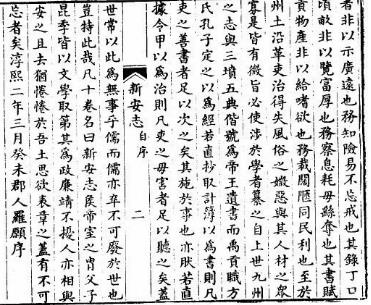 者非以示廣遠也務知險易不忘戒也其錄丁口
頃畝非以覽富厚也務察息耗毋繇奪也其書賦
貢物產非以給嗜欲也務裁闊匱同民利也至於
州土沿革吏治得失風俗之媺惡與其人材之衆
寡是皆有微旨必使涉於學者纂之自上世九州
之志與三墳五典偕號為帝王遺書而禹貢職方
氏孔子定之以為經若直抄取計簿以為書則凡
吏之善書者足以次之矣其施於事也亦然若直
據令甲以為治則凡吏之毋害者足以聽之矣蓋
新安志 自序 二
世常以此為無事乎儒而儒亦卒不可廢於世也
豈特此哉凡十卷名曰新安志侯帝室之胄父子
昆季皆以文學取第其為政廉靖不擾人亦相與
安之且去猶惓惓於吾土思欲表章之蓋有不可
忘者矣淳熙二年三月癸未郡人羅願序